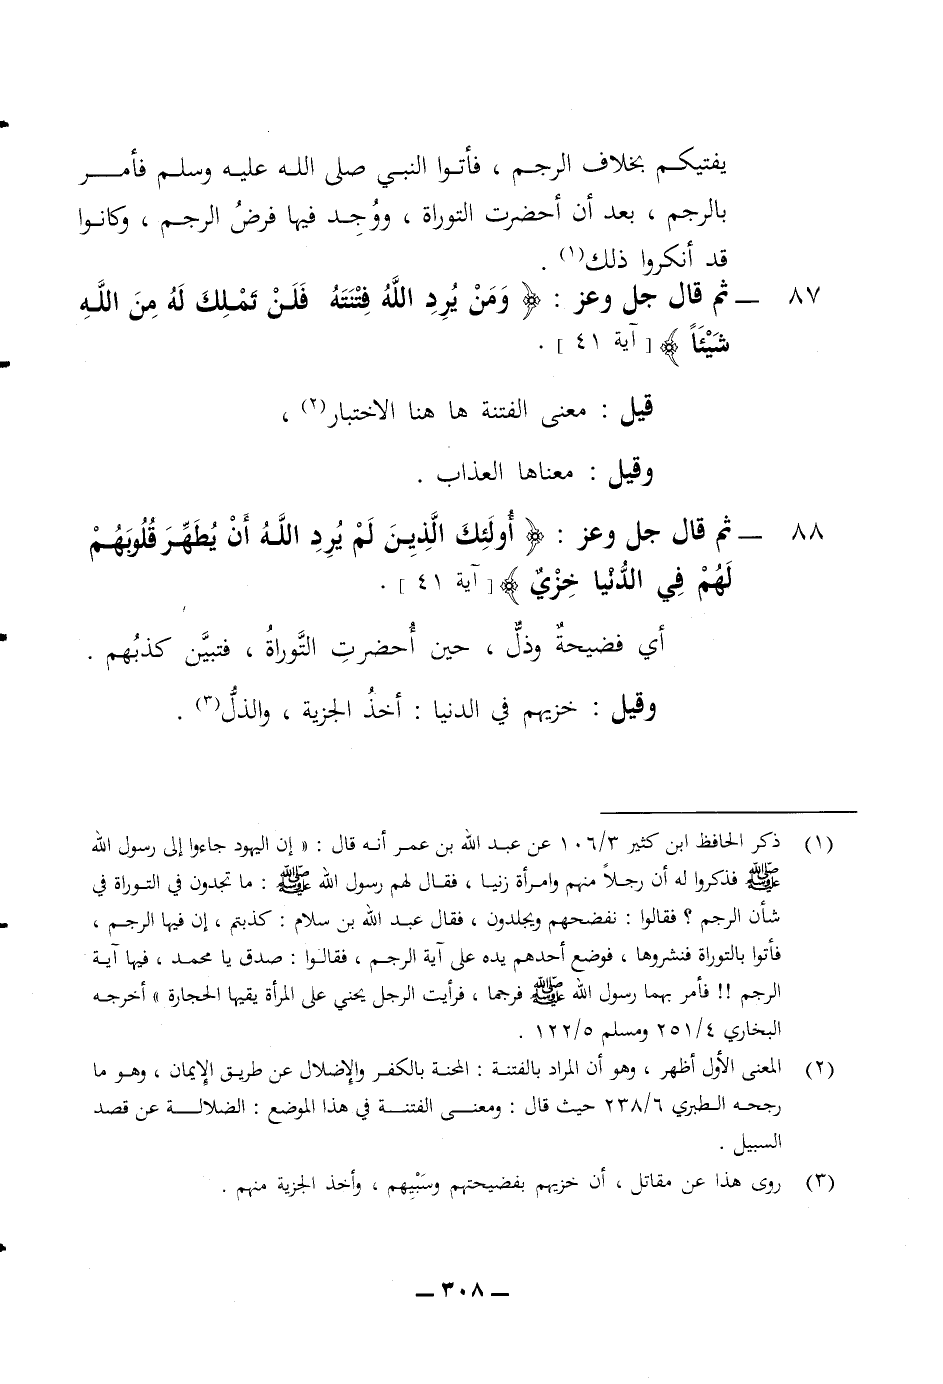 يفتيكم بخلاف الرجم ، فأتوا النبي صلى الله عليه وسلم فأمر
بالرجم ، بعد أن أحضرت التوراة ، ووُجِد فيها فرضُ الرجم ، وكانوا
قد أنكروا ذلك(١) .
٨٧ ــ ثم قال جل وعز : ﴿ وَمَنْ يُرِدِ اللَّهُ فِتْنَتَهُ فَلَنْ تَمْلِكَ لَهُ مِنَ اللَّهِ
شَيْئاً ﴾ [ آية ٤١ ] .
قيل : معنى الفتنة ها هنا الاختبار(٢) ،
وقيل : معناها العذاب .
٨٨ ــ ثم قال جل وعز : ﴿ أُولَئِكَ الَّذِينَ لَمْ يُرِدِ اللَّهُ أَنْ يُطَهِّرَ قُلُوبَهُمْ
لَهُمْ فِي الدُّنْيَا خِزْيٌ ﴾ [ آية ٤١ ] .
أي فضيحةٌ وذلٌّ ، حين أُحضرتِ التَّوراةُ ، فتبيَّن كذبُهم .
وقيل : خزيهم في الدنيا : أخذُ الجزية ، والذلُّ(٣) .
(١) ذكر الحافظ ابن كثير ١٠٦/٣ عن عبد الله بن عمر أنه قال : « إن اليهود جاءوا إلى رسول الله
ﷺ فذكروا له أن رجلاً منهم وامرأة زنيا ، فقال لهم رسول الله ﷺ : ما تجدون في التوراة في
شأن الرجم ؟ فقالوا : نفضحهم ويجلدون ، فقال عبد الله بن سلام : كذبتم ، إن فيها الرجم ،
فأتوا بالتوراة فنشروها ، فوضع أحدهم يده على آية الرجم ، فقالوا : صدق يا محمد ، فيها آية
الرجم !! فأمر بهما رسول الله ﷺ فرجما ، فرأيت الرجل يحني على المرأة يقيها الحجارة » أخرجه
البخاري ٢٥١/٤ ومسلم ١٢٢/٥ .
(٢) المعنى الأول أظهر ، وهو أن المراد بالفتنة : المحنة بالكفر والإضلال عن طريق الإيمان ، وهو ما
رجحه الطبري ٢٣٨/٦ حيث قال : ومعنى الفتنة في هذا الموضع : الضلالة عن قصد
السبيل .
(٣) روى هذا عن مقاتل ، أن خزيهم بفضيحتهم وسَبْيِهم ، وأخذ الجزية منهم .
ــ ٣٠٨ ــ